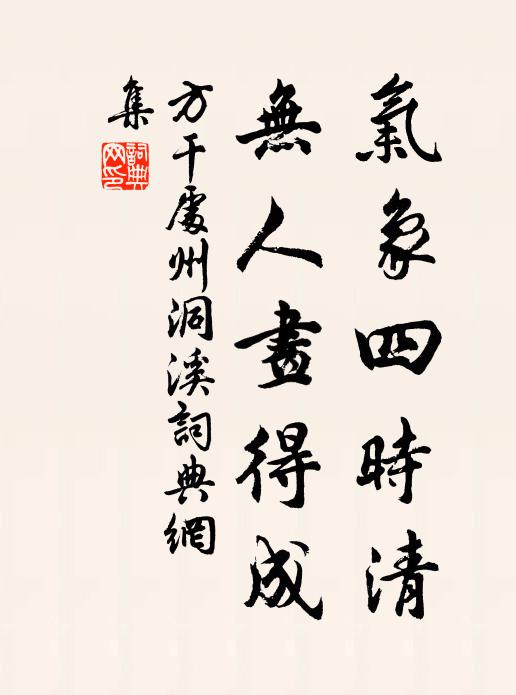 氣象四時清
無人畫得成
方干處州洞溪詞典網
集
詞典網印